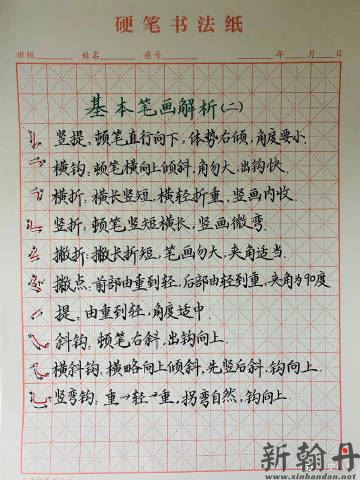 硬笔书法纸
班级 姓名 座号 年 月 日
基本笔画解析(二)
竖提:顿笔直行向下,体势右倾,角度要小.
横钩:顿笔横向上倾斜,角勿大,出钩快.
横折:横长竖短,横轻折重,竖画内收.
竖折:顿笔竖短横长,竖画微弯.
撇折:撇长折短,笔画勿大,夹角适当.
撇点:前部由重到轻,后部由轻到重,夹角为90度
提:由重到轻,角度适中.
斜钩:顿笔右斜,出钩向上.
横斜钩:横略向上倾斜,先竖后斜,钩向上.
竖弯钩:重→轻→重,拐弯自然,钩向上.
新翰丹
www.xinhandan.net